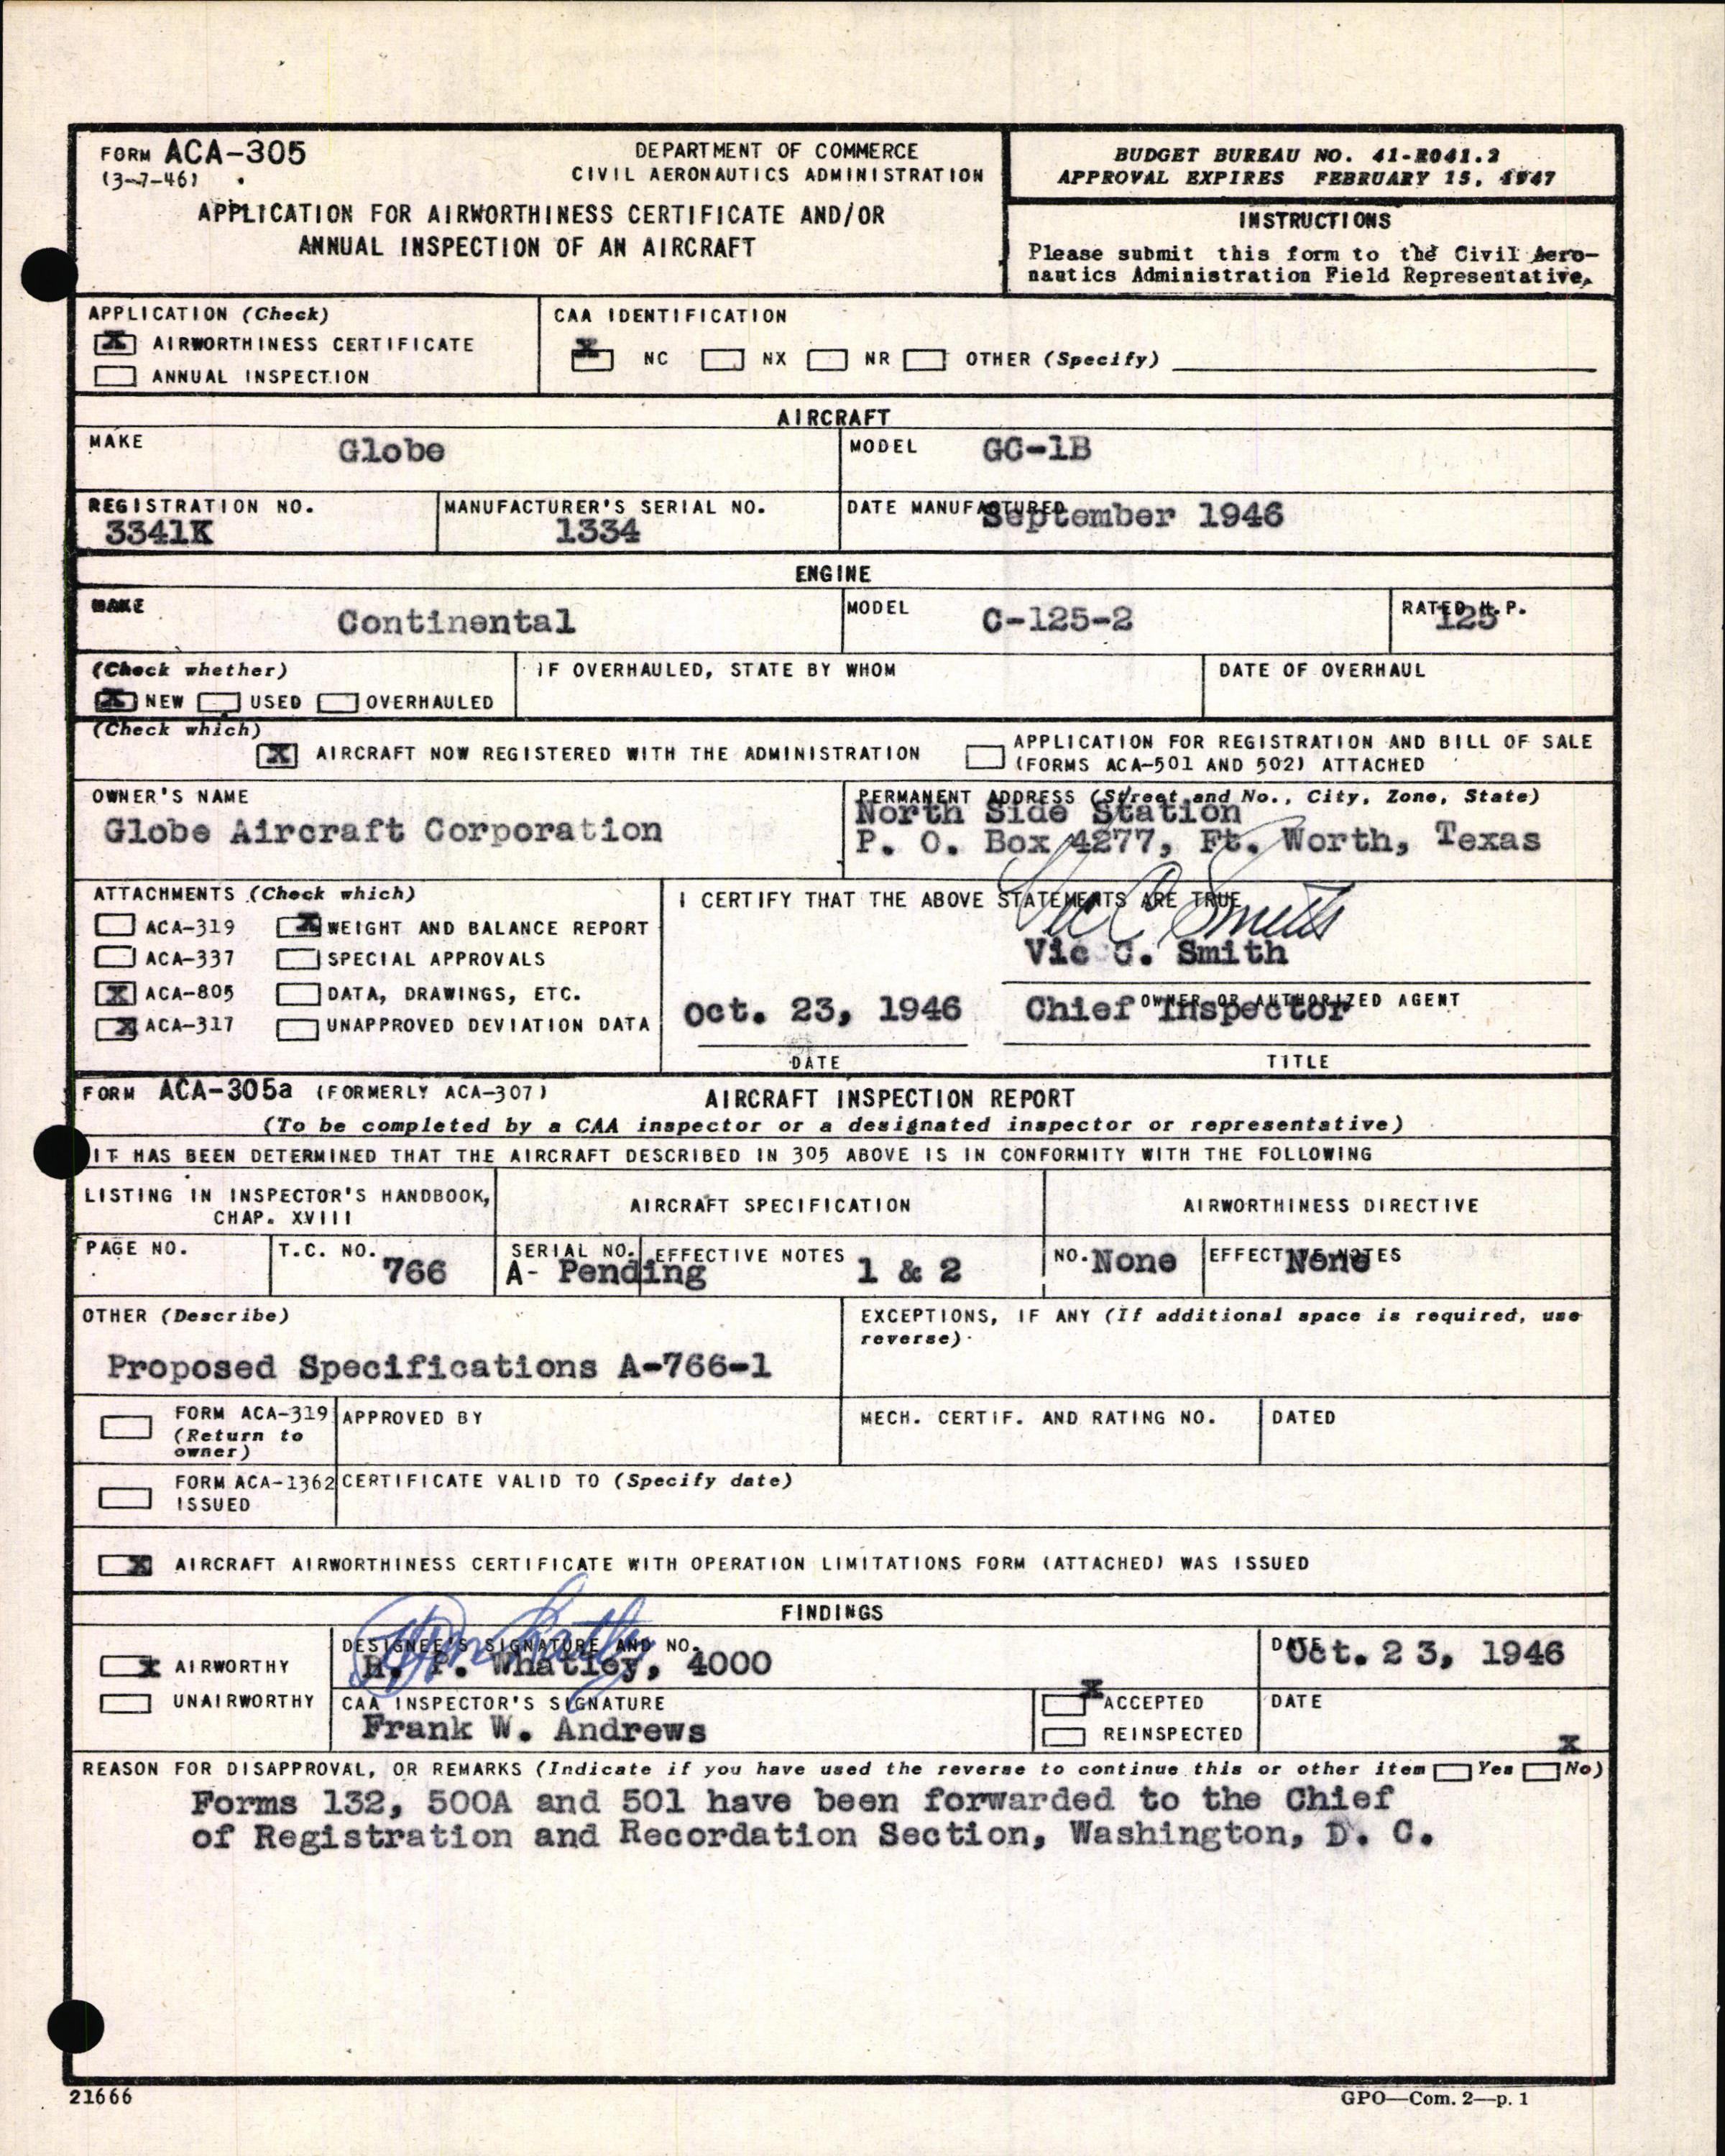 FORM ACA-305
(3-7-46)
DEPARTMENT OF COMMERCE
CIVIL AERONAUTICS ADMINISTRATION
APPLICATION FOR AIRWORTHINESS CERTIFICATE AND/OR
ANNUAL INSPECTION OF AN AIRCRAFT
BUDGET BUREAU NO. 41-R041.2
APPROVAL EXPIRES FEBRUARY 15, 1947
INSTRUCTIONS
Please submit this form to the Civil Aero-
nautics Administration Field Representative.
APPLICATION (Check)
X AIRWORTHINESS CERTIFICATE
ANNUAL INSPECTION
CAA IDENTIFICATION
X NC NX NR OTHER (Specify)
AIRCRAFT
MAKE Globe
MODEL GC-1B
REGISTRATION NO.
3341K
MANUFACTURER'S SERIAL NO.
1334
DATE MANUFACTURED
September 1946
ENGINE
MAKE Continental
MODEL C-125-2
RATED H.P.
125
(Check whether)
X NEW USED OVERHAULED
IF OVERHAULED, STATE BY WHOM
DATE OF OVERHAUL
(Check which)
X AIRCRAFT NOW REGISTERED WITH THE ADMINISTRATION
APPLICATION FOR REGISTRATION AND BILL OF SALE
(FORMS ACA-501 AND 502) ATTACHED
OWNER'S NAME
Globe Aircraft Corporation
PERMANENT ADDRESS (Street and No., City, Zone, State)
North Side Station
P. O. Box 4277, Ft. Worth, Texas
ATTACHMENTS (Check which)
ACA-319 X WEIGHT AND BALANCE REPORT
ACA-337 SPECIAL APPROVALS
X ACA-805 DATA, DRAWINGS, ETC.
X ACA-317 UNAPPROVED DEVIATION DATA
I CERTIFY THAT THE ABOVE STATEMENTS ARE TRUE
Vic C Smith
Vic C. Smith
OWNER OR AUTHORIZED AGENT
Oct. 23, 1946 Chief Inspector
DATE TITLE
FORM ACA-305a (FORMERLY ACA-307) AIRCRAFT INSPECTION REPORT
(To be completed by a CAA inspector or a designated inspector or representative)
IT HAS BEEN DETERMINED THAT THE AIRCRAFT DESCRIBED IN 305 ABOVE IS IN CONFORMITY WITH THE FOLLOWING
LISTING IN INSPECTOR'S HANDBOOK,
CHAP. XVIII
AIRCRAFT SPECIFICATION
AIRWORTHINESS DIRECTIVE
PAGE NO.
T.C. NO. 766
SERIAL NO.
A- Pending
EFFECTIVE NOTES 1 & 2
NO. None
EFFECTIVE NOTES
None
OTHER (Describe)
Proposed Specifications A-766-1
EXCEPTIONS, IF ANY (If additional space is required, use
reverse).
FORM ACA-319
(Return to
owner)
APPROVED BY
MECH. CERTIF. AND RATING NO.
DATED
FORM ACA-1362
ISSUED
CERTIFICATE VALID TO (Specify date)
X AIRCRAFT AIRWORTHINESS CERTIFICATE WITH OPERATION LIMITATIONS FORM (ATTACHED) WAS ISSUED
FINDINGS
X AIRWORTHY
UNAIRWORTHY
DESIGNEE'S SIGNATURE AND NO.
Whatley, 4000
DATE
Oct. 23, 1946
CAA INSPECTOR'S SIGNATURE
Frank W. Andrews
X ACCEPTED
REINSPECTED
DATE
REASON FOR DISAPPROVAL, OR REMARKS (Indicate if you have used the reverse to continue this or other item Yes X No)
Forms 132, 500A and 501 have been forwarded to the Chief
of Registration and Recordation Section, Washington, D. C.
21666
GPO—Com. 2—p. 1